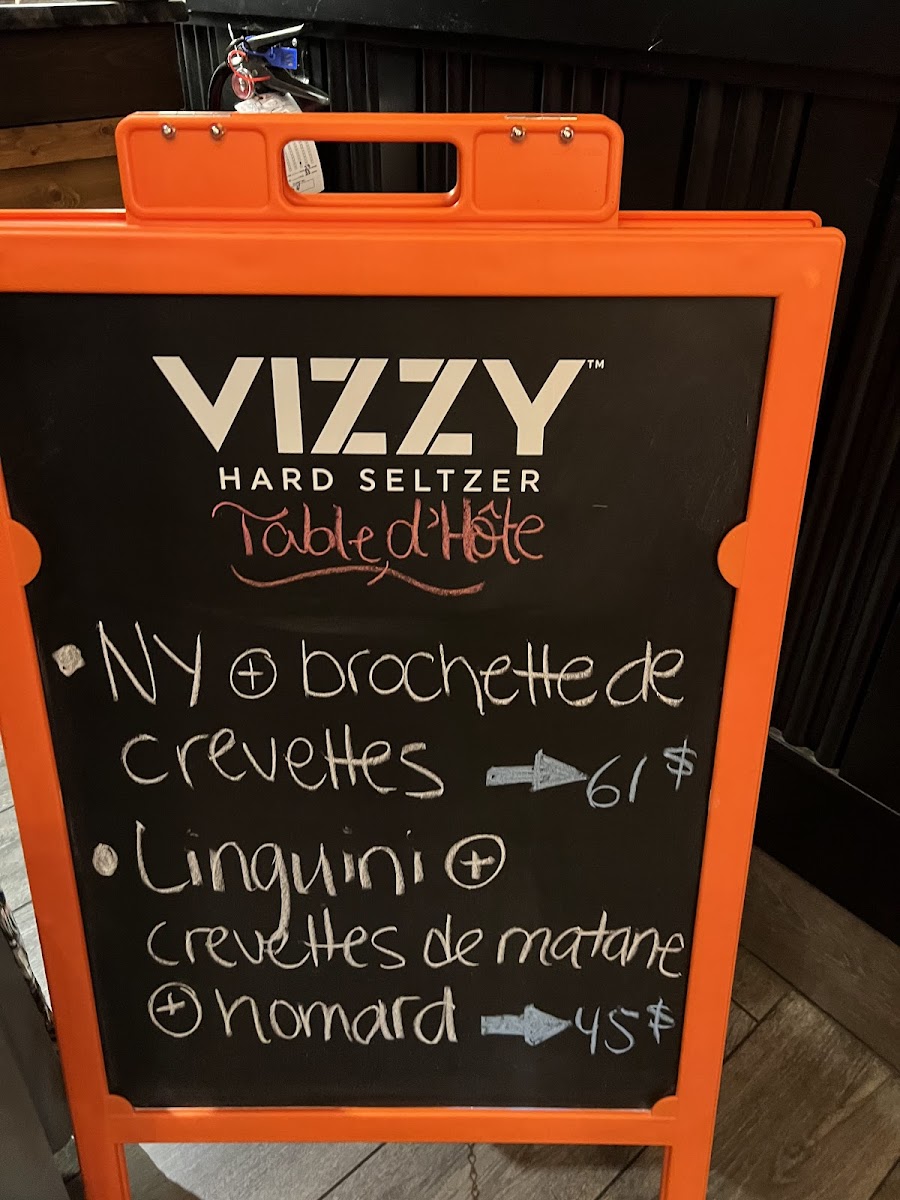 VIZZY™
HARD SELTZER
Table d'Hôte
• NY + brochette de
crevettes → 61 $
• Linguini +
crevettes de matane
+ homard → 45 $